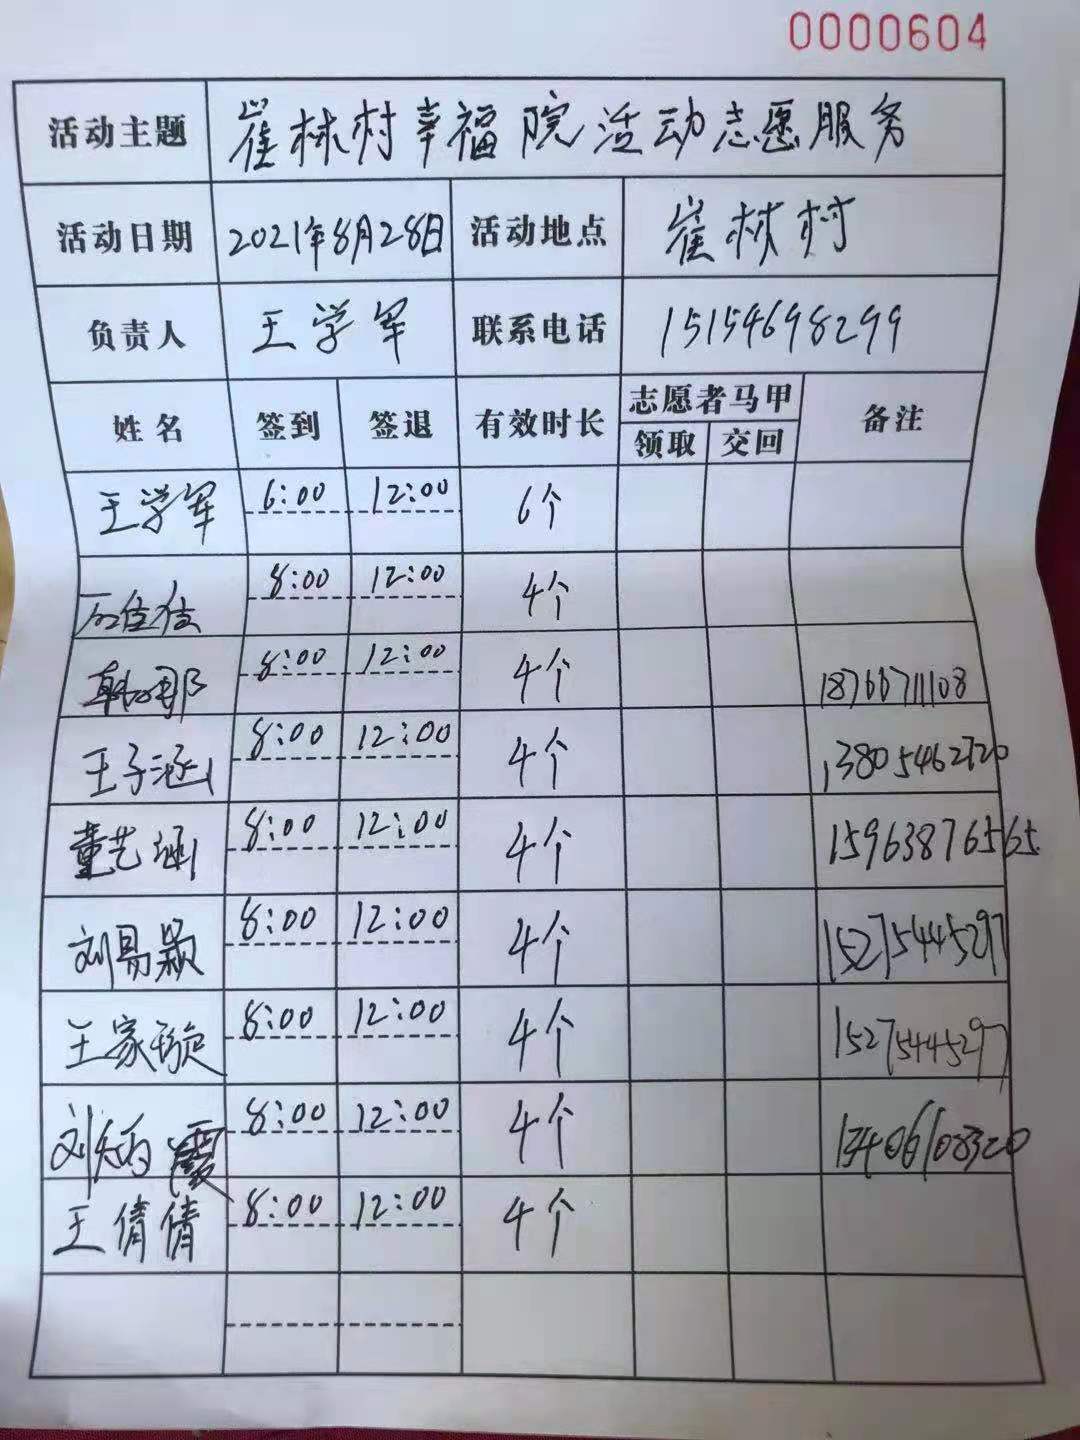 0000604
活动主题 崔林村幸福院活动志愿服务
活动日期 2021年8月28日 活动地点 崔林村
负责人 王学军 联系电话 15154698299
姓名 签到 签退 有效时长 志愿者马甲 备注
领取 交回
王学军 6:00 12:00 6个
8:00 12:00 4个
韩娜 8:00 12:00 4个 18766711108
王子涵 8:00 12:00 4个 13805462720
董艺涵 8:00 12:00 4个 15963876565
刘易颖 8:00 12:00 4个 15275445297
王家璇 8:00 12:00 4个 15275445297
刘炳霞 8:00 12:00 4个 13406108320
王倩倩 8:00 12:00 4个